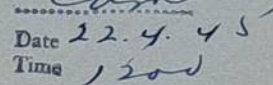 Date 22.4.45
Time 1200